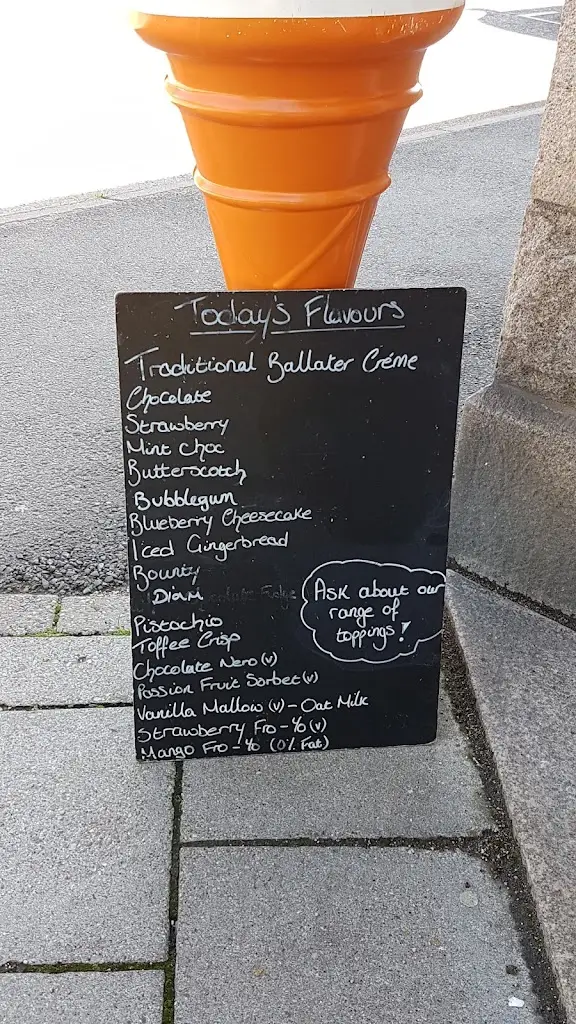 Today's Flavours
Traditional Ballater Créme
Chocolate
Strawberry
Mint Choc
Butterscotch
Bubblegum
Blueberry Cheesecake
Iced Gingerbread
Bounty
Fudge
Pistachio
Toffee Crisp
Chocolate Nero (v)
Passion Fruit Sorbet (v)
Vanilla Mallow (v) - Oat Milk
Strawberry Fro - Yo (v)
Mango Fro - Yo (0% Fat)
Ask about our
range of
toppings!